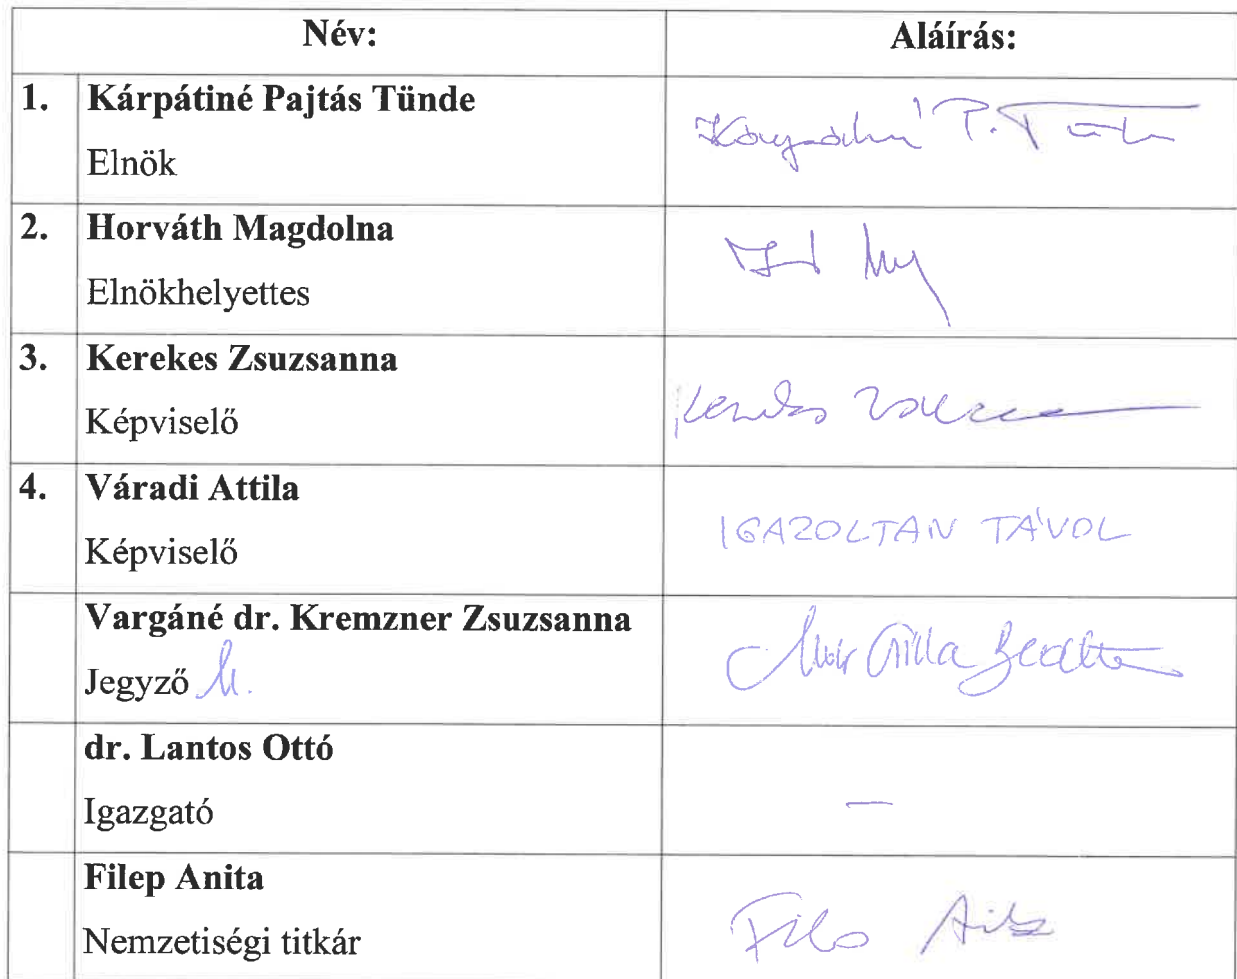 Név: Aláírás:
1. Kárpátiné Pajtás Tünde
Elnök
Kárpátiné P. Tünde
2. Horváth Magdolna
Elnökhelyettes
3. Kerekes Zsuzsanna
Képviselő
Kerekes
4. Váradi Attila
Képviselő
IGAZOLTAN TÁVOL
Vargáné dr. Kremzner Zsuzsanna
Jegyző
dr. Lantos Ottó
Igazgató
—
Filep Anita
Nemzetiségi titkár
Filep Anita